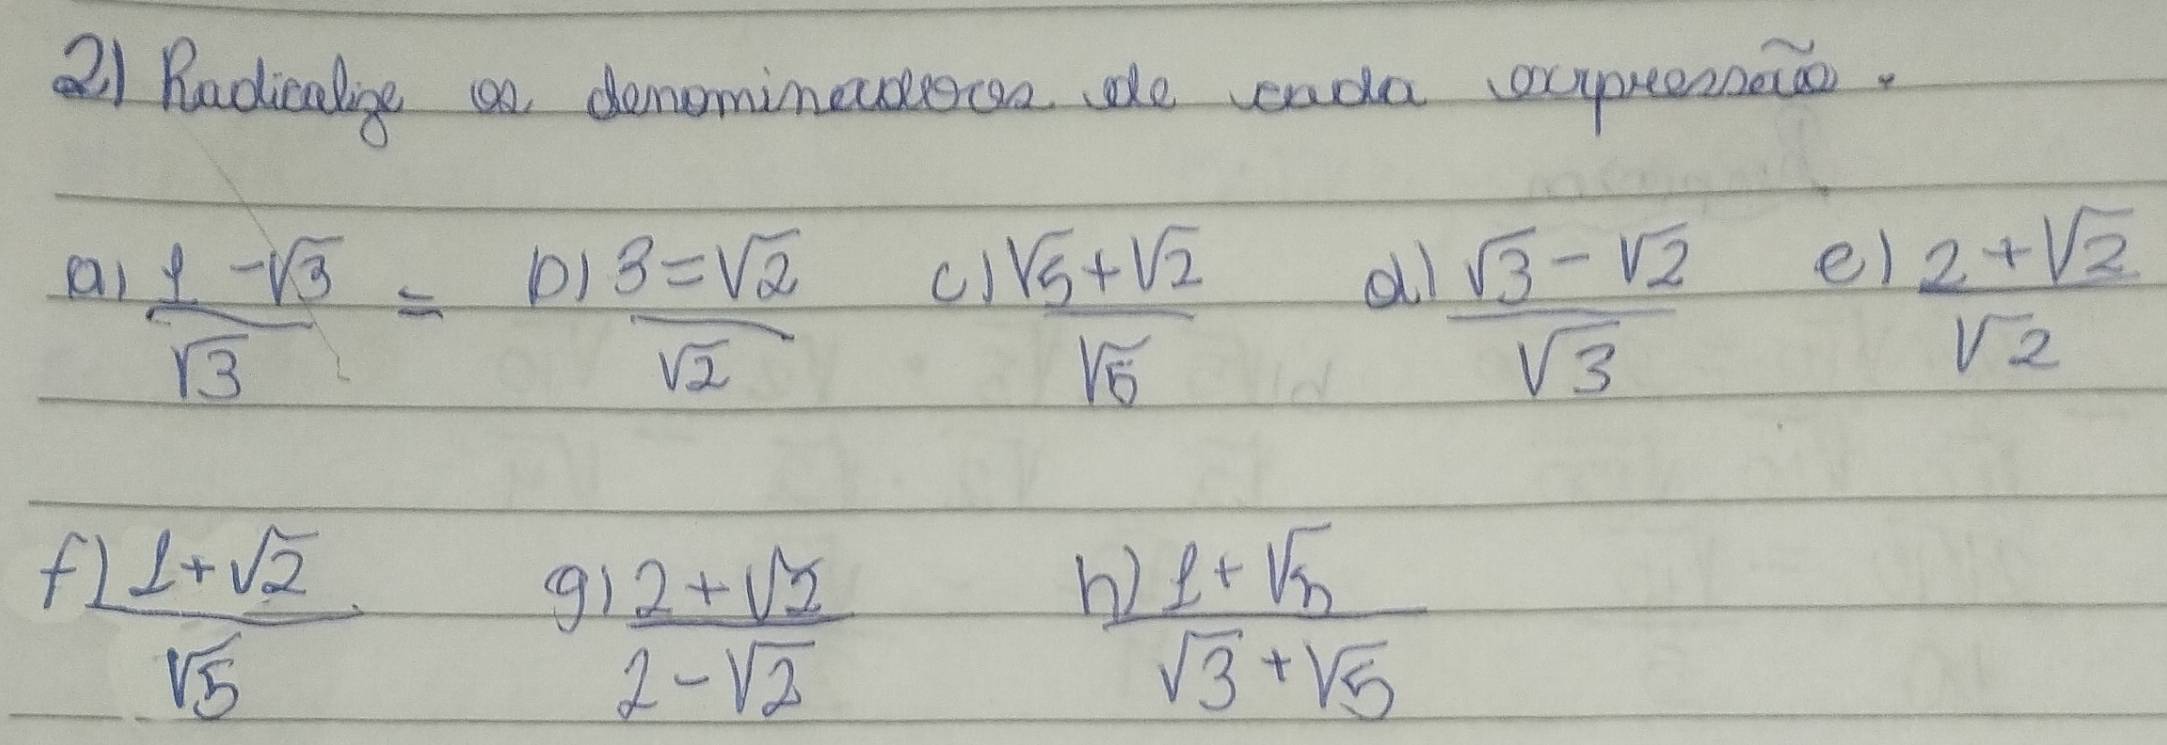 2) Radicalize os denominadores de cada expressão.
a) (1 - √3)/√3 = b) (3 = √2)/√2 c) (√5 + √2)/√5 d) (√3 - √2)/√3 e) (2 + √2)/√2
f) (1 + √2)/√5 g) (2 + √2)/(2 - √2) h) (1 + √5)/(√3 + √5)